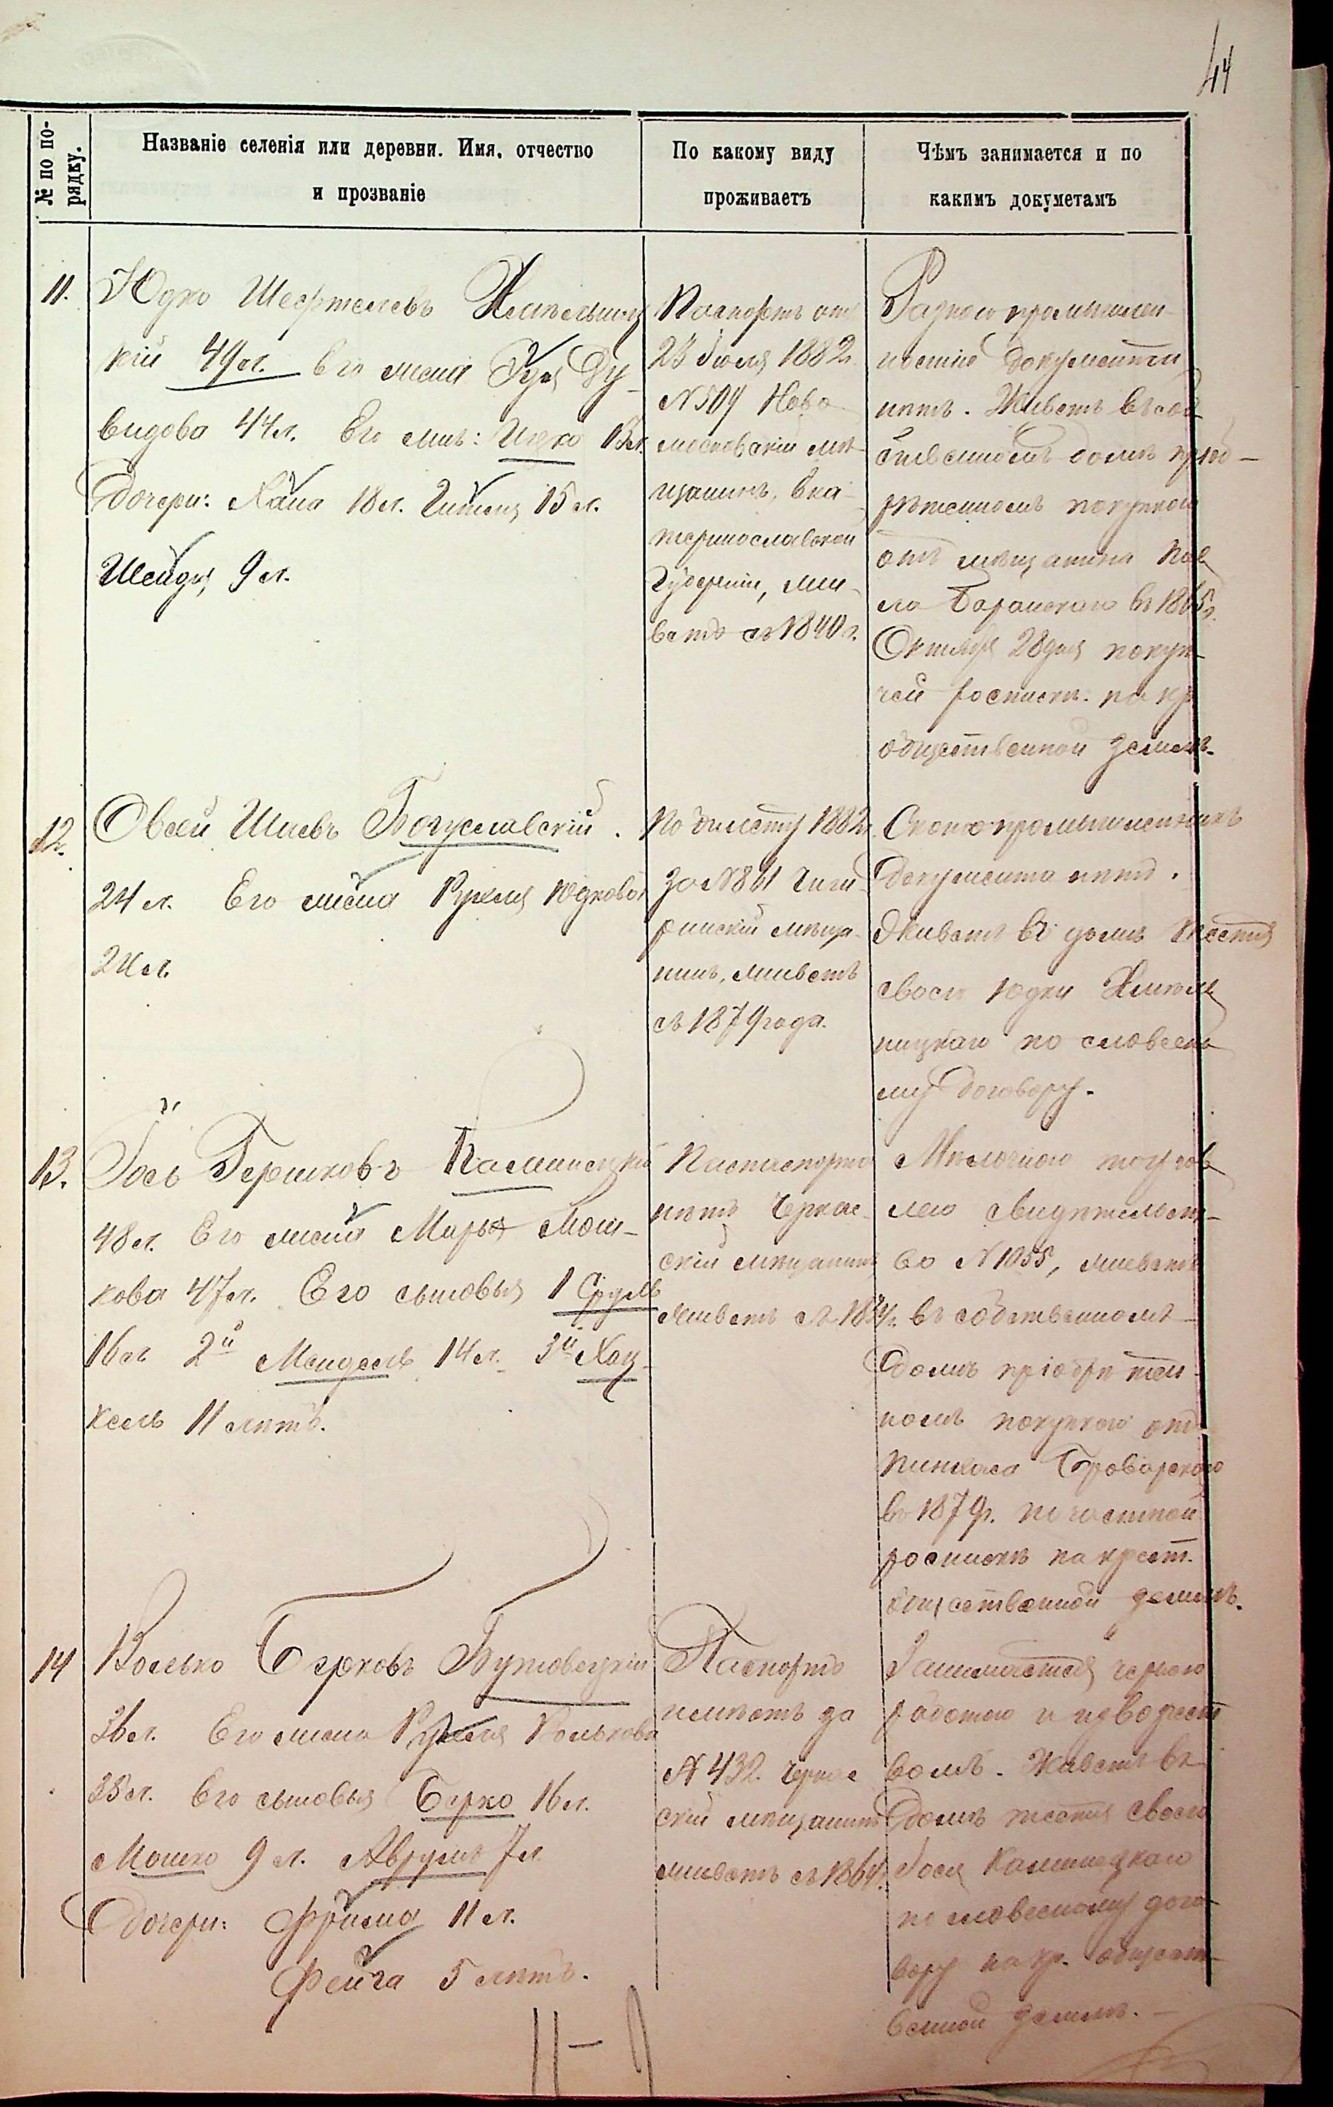 44
№ по по-
рядку.
Названіе селенія или деревни. Имя, отчество
и прозваніе
По какому виду
проживаетъ
Чѣмъ занимается и по
какимъ докуметамъ
11.
Юдко Шефтелевъ
кій 49 л. Его жена Руд Ду-
видова 44 л. Его сынъ: Ицко 13 л.
Дочери: Хана 18 л. Гитля 15 л.
Шейдя, 9 л.
Паспортъ отъ
23 Іюля 1882 г.
№ 509 Ново
московскій мѣ-
щанинъ, Ека-
теринославской
Губерніи, жи-
ветъ съ 1840 г.
промышлен-
ностію документы
нѣтъ. Живетъ въ соб
ственномъ домѣ пріоб-
рѣтенномъ покупкою
отъ мѣщанина Пав
ла Баранскаго въ 1865 г.
Октября 28 дня покуп
чей роспискѣ. на кр
общественной землѣ.
12.
Овсей Шаевъ Богуславскій.
24 л. Его жена Рухля Юдкова
24 л.
По билету 1882 г.
за № 861 Чиги-
ринскій мѣща-
нинъ, живетъ
съ 1879 года.
Скотопромышленникъ
Документа нѣтъ.
Живетъ въ домѣ тестя
своего Юдки Хмѣль
ницкаго по словесно
му договору.
13.
Іось Гершковъ Каменецкій
48 л. Его жена Марья Мош-
кова 47 л. Его сыновья 1 Сруль
16 л. 2й Мендель 14 л. 3й Хац-
кель 11 лѣтъ.
Паспорта
нѣтъ Черкас-
скій мѣщанинъ
живетъ съ
Мѣлочною торгов
лею свидѣтельст-
во № 1055, живетъ
въ собственномъ
домѣ пріобрѣтен-
номъ покупкою отъ
Пинхаса Броварскаго
въ 1879 г. по частной
роспискѣ на крест.
общественной землѣ.
14
Волько Берковъ Бужовецкій
36 л. Его жена Рухля Волькова
38 л. Его сыновья Берко 16 л.
Мошко 9 л. Аврумъ 7 л.
Дочери: Фрима 11 л.
Фейга 5 лѣтъ.
Паспортъ
имѣетъ за
№ 432. Черкас
скій мѣщанинъ
живетъ съ 1864 г.
Занимается черною
работою и извозчест
вомъ. Живетъ въ
домѣ тестя своего
Іося Каменецкаго
по словесному дого-
вору на кр. общест-
венной землѣ.